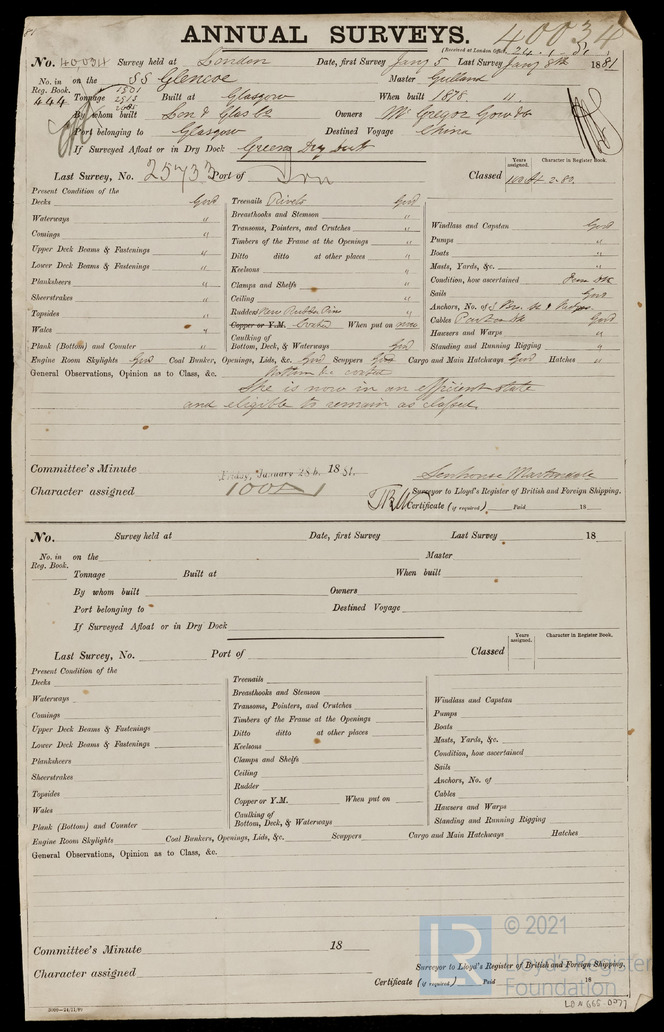 ANNUAL SURVEYS. 40034
(Received at London Office 24.1.81
No. 40034 Survey held at London Date, first Survey Jany 5 Last Survey Jany 8th 1881
No. in Reg. Book. on the SS Glencoe Master Gulland
444 Tonnage 1901 2913 2085 Built at Glasgow When built 1878. 11
By whom built Lon & Glas Co Owners McGregor Gow & Co
Port belonging to Glasgow Destined Voyage China
If Surveyed Afloat or in Dry Dock Greens Dry Dock
Years assigned. Character in Register Book.
Last Survey, No. 25733 Port of Lon Classed 100A1 2.80.
Present Condition of the
Decks Good Treenails Rivets Good
Waterways " Breasthooks and Stemson "
Comings " Transoms, Pointers, and Crutches " Windlass and Capstan Good
Upper Deck Beams & Fastenings " Timbers of the Frame at the Openings " Pumps "
Lower Deck Beams & Fastenings " Ditto ditto at other places " Boats "
Planksheers " Keelsons " Masts, Yards, &c. "
Sheerstrakes " Clamps and Shelfs " Condition, how ascertained From Dk
Topsides " Ceiling " Sails Good
Wales " Rudder New Rudder Pin " Anchors, No. of
Copper or Y.M. Coated When put on now Cables Good
Plank (Bottom) and Counter " Caulking of Bottom, Deck, & Waterways Good Hawsers and Warps "
Standing and Running Rigging "
Engine Room Skylights Good Coal Bunker, Openings, Lids, &c. Good Scuppers Good Cargo and Main Hatchways Good Hatches "
General Observations, Opinion as to Class, &c. Bottom &c coated
She is now in an efficient state
and eligible to remain as classed.
Committee's Minute Friday, January 28th. 1881.
Character assigned 100A1
Senhouse Martindale
Surveyor to Lloyd's Register of British and Foreign Shipping.
Certificate (if required) Paid 18
No. Survey held at Date, first Survey Last Survey 18
No. in Reg. Book. on the Master
Tonnage Built at When built
By whom built Owners
Port belonging to Destined Voyage
If Surveyed Afloat or in Dry Dock
Years assigned. Character in Register Book.
Last Survey, No. Port of Classed
Present Condition of the
Decks Treenails
Waterways Breasthooks and Stemson Windlass and Capstan
Comings Transoms, Pointers, and Crutches Pumps
Upper Deck Beams & Fastenings Timbers of the Frame at the Openings Boats
Lower Deck Beams & Fastenings Ditto ditto at other places Masts, Yards, &c.
Planksheers Keelsons Condition, how ascertained
Sheerstrakes Clamps and Shelfs Sails
Topsides Ceiling Anchors, No. of
Wales Rudder Cables
Copper or Y.M. When put on Hawsers and Warps
Plank (Bottom) and Counter Caulking of Bottom, Deck, & Waterways Standing and Running Rigging
Engine Room Skylights Coal Bunkers, Openings, Lids, &c. Scuppers Cargo and Main Hatchways Hatches
General Observations, Opinion as to Class, &c.
Committee's Minute 18
Character assigned
Surveyor to Lloyd's Register of British and Foreign Shipping.
Certificate (if required) Paid 18
LR © 2021
Lloyd's Register
Foundation
LON 665 0277